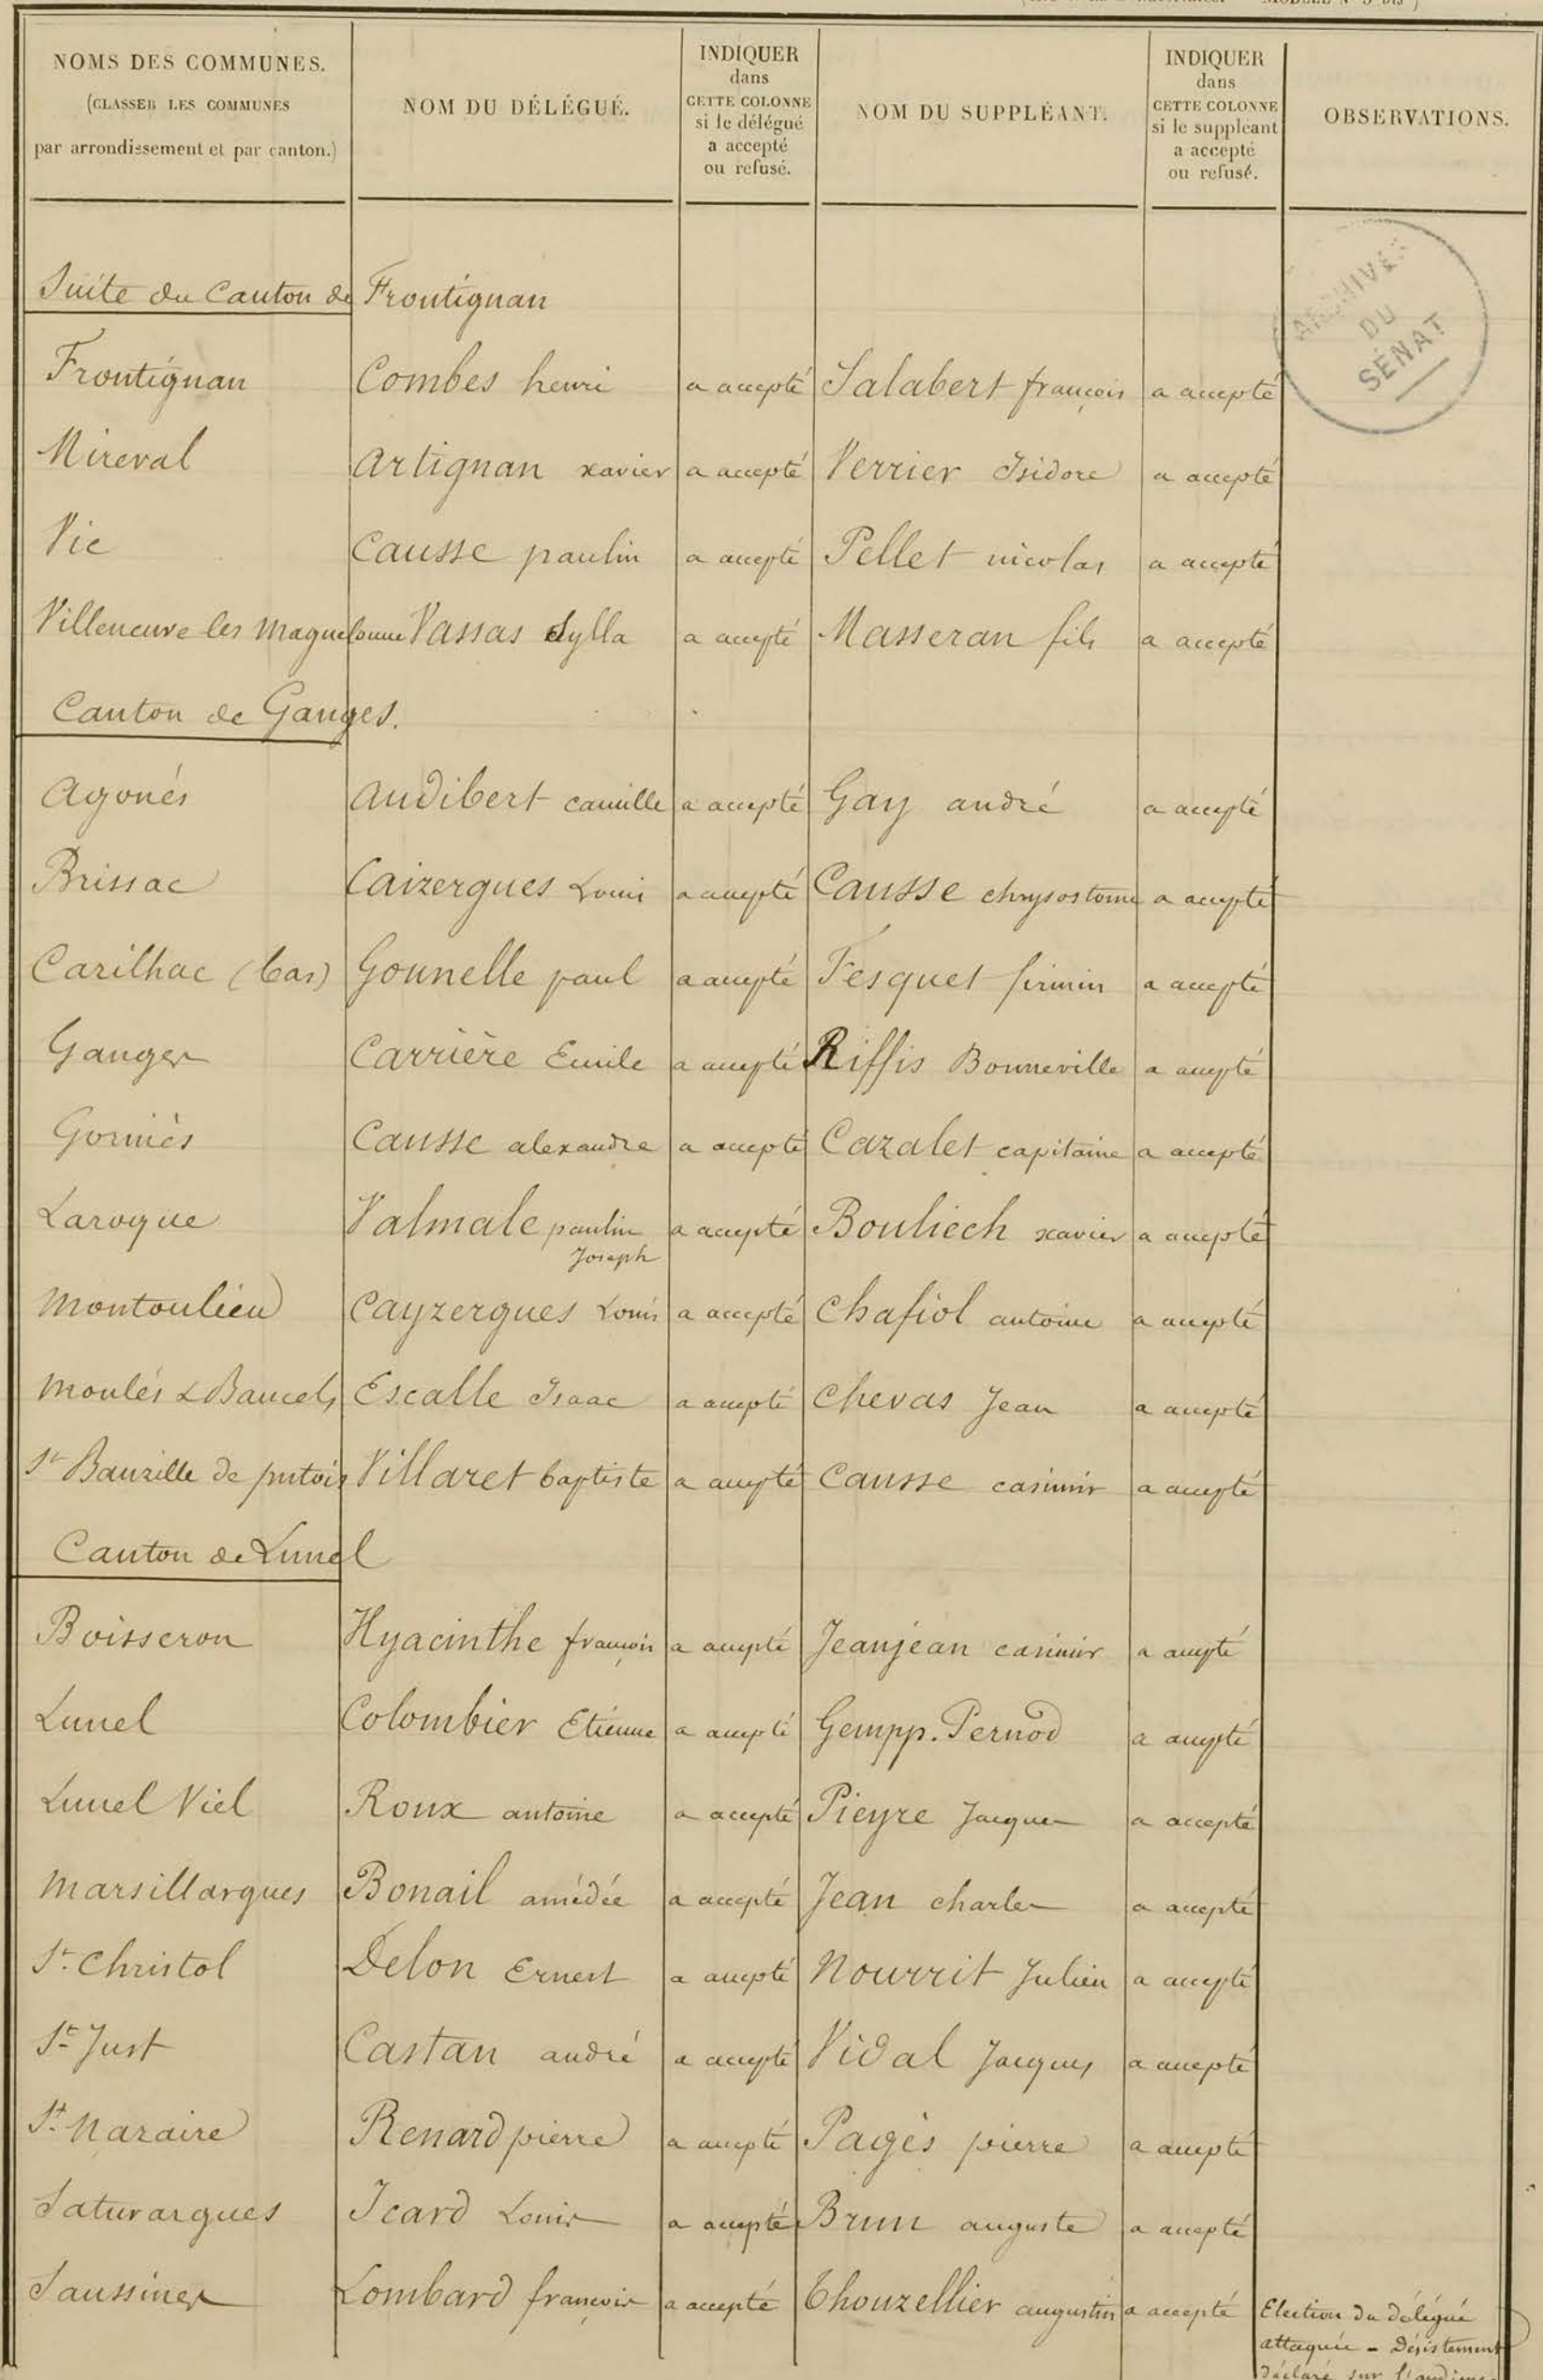 NOMS DES COMMUNES.
(CLASSER LES COMMUNES
par arrondissement et par canton.)
NOM DU DÉLÉGUÉ.
INDIQUER
dans
CETTE COLONNE
si le délégué
a accepté
ou refusé.
NOM DU SUPPLÉANT.
INDIQUER
dans
CETTE COLONNE
si le suppléant
a accepté
ou refusé.
OBSERVATIONS.
ARCHIVES
DU
SÉNAT
Suite du Canton de Frontignan
Frontignan Combes henri a accepté Salabert françois a accepté
Mireval Artignan xavier a accepté Verrier Isidore a accepté
Vic Causse paulin a accepté Pellet nicolas a accepté
Villeneuve les Maguelonne Vassas Sylla a accepté Masseran fils a accepté
Canton de Ganges.
Agonés Audibert camille a accepté Gay andré a accepté
Brissac Caizergues Louis a accepté Causse chrysostome a accepté
Cazilhac (bas) Gounelle paul a accepté Fesquet firmin a accepté
Ganges Carrière Emile a accepté Riffis Bonneville a accepté
Gorniès Causse alexandre a accepté Cazalet capitaine a accepté
Laroque Valmale paulin a accepté Bouliech xavier a accepté
Joseph
Montoulieu Cayzergues Louis a accepté Chafiol antoine a accepté
Moulés & Baucels Escalle Isaac a accepté Chevas Jean a accepté
St Bauzille de putois Villaret baptiste a accepté Causse casimir a accepté
Canton de Lunel
Boisseron Hyacinthe françois a accepté Jeanjean casimir a accepté
Lunel Colombier Etienne a accepté Gempp. Pernod a accepté
Lunel Viel Roux antoine a accepté Pieyre Jacques a accepté
Marsillargues Bonail amédée a accepté Jean charles a accepté
St. Christol Delon Ernest a accepté Nourrit Julien a accepté
St Just Castan andré a accepté Vidal Jacques a accepté
St. Nazaire Renard pierre a accepté Pagès pierre a accepté
Saturargues Icard Louis a accepté Brun auguste a accepté
Saussines Lombard françois a accepté Thouzellier augustin a accepté Election du délégué
attaquée - Désistement
déclaré sur